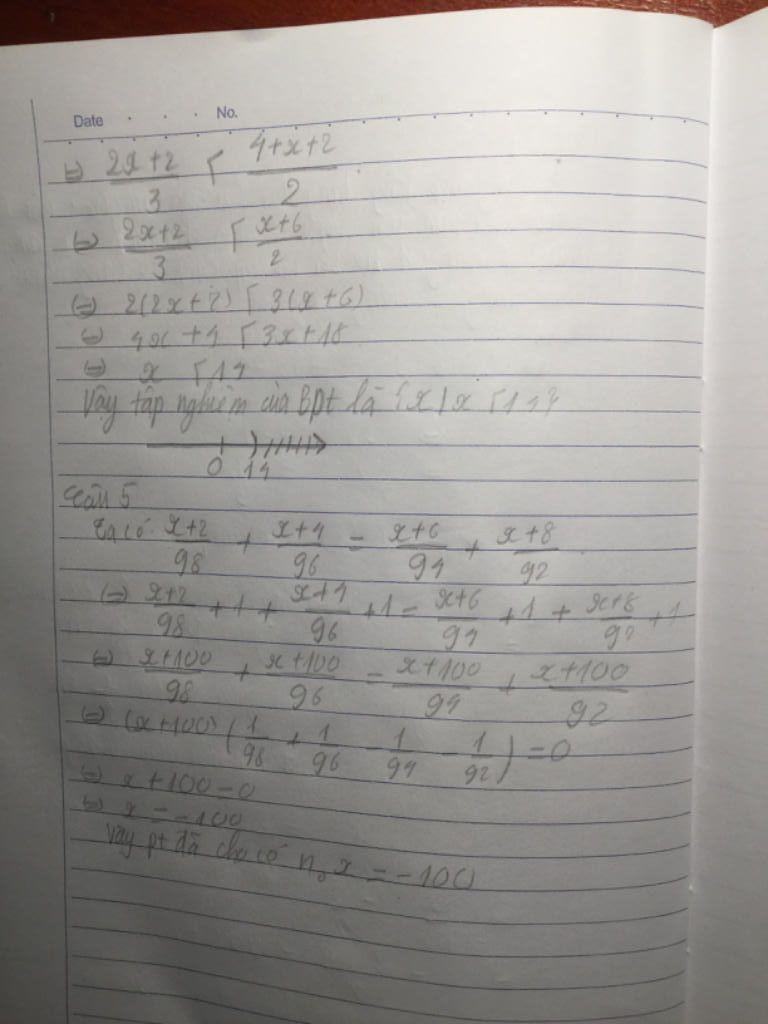 Date No.
⇔ (2x+2)/3 < (4+x+2)/2
⇔ (2x+2)/3 < (x+6)/2
⇔ 2(2x+2) < 3(x+6)
⇔ 4x+4 < 3x+18
⇔ x < 14
Vậy tập nghiệm của Bpt là {x | x < 14}
0 14
Câu 5
Ta có (x+2)/98 + (x+4)/96 = (x+6)/94 + (x+8)/92
⇔ (x+2)/98 + 1 + (x+4)/96 + 1 = (x+6)/94 + 1 + (x+8)/92 + 1
⇔ (x+100)/98 + (x+100)/96 = (x+100)/94 + (x+100)/92
⇔ (x+100) (1/98 + 1/96 - 1/94 - 1/92) = 0
⇔ x+100 = 0
⇔ x = -100
Vậy pt đã cho có n₀ x = -100